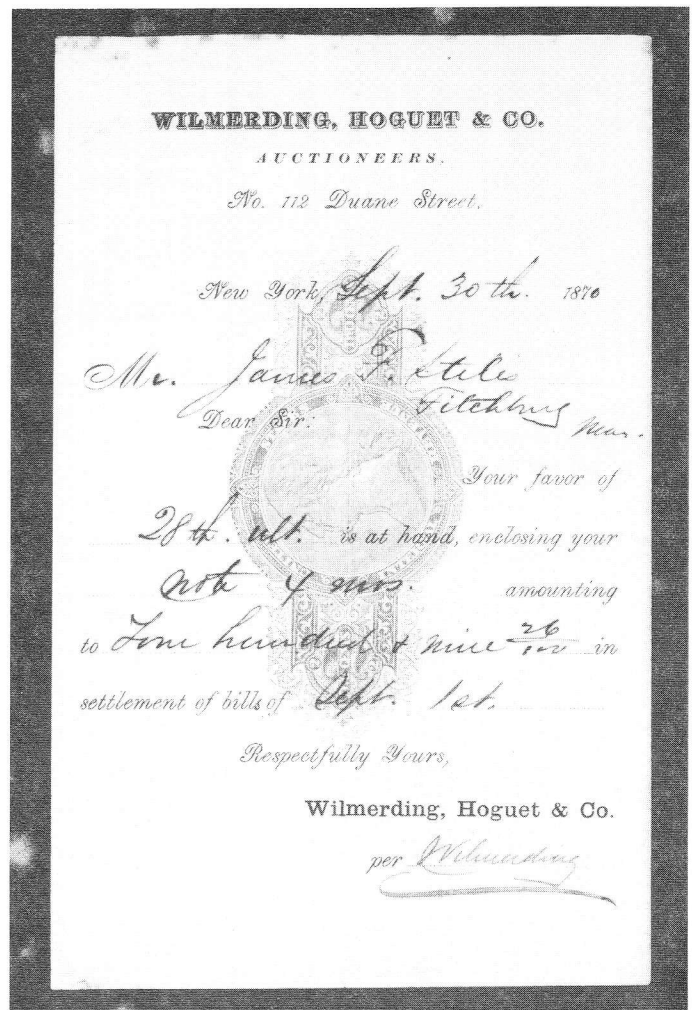 WILMERDING, HOGUET & CO.
AUCTIONEERS.
No. 112 Duane Street.
New York, Sept. 30th. 1870
Mr. James F. Stiles
Fitchburg
Mass.
Dear Sir:
Your favor of
28th. ult. is at hand, enclosing your
note 4 mos. amounting
to Four hundred & nine 26/100 in
settlement of bills of Sept. 1st.
Respectfully Yours,
Wilmerding, Hoguet & Co.
per JWilmerding